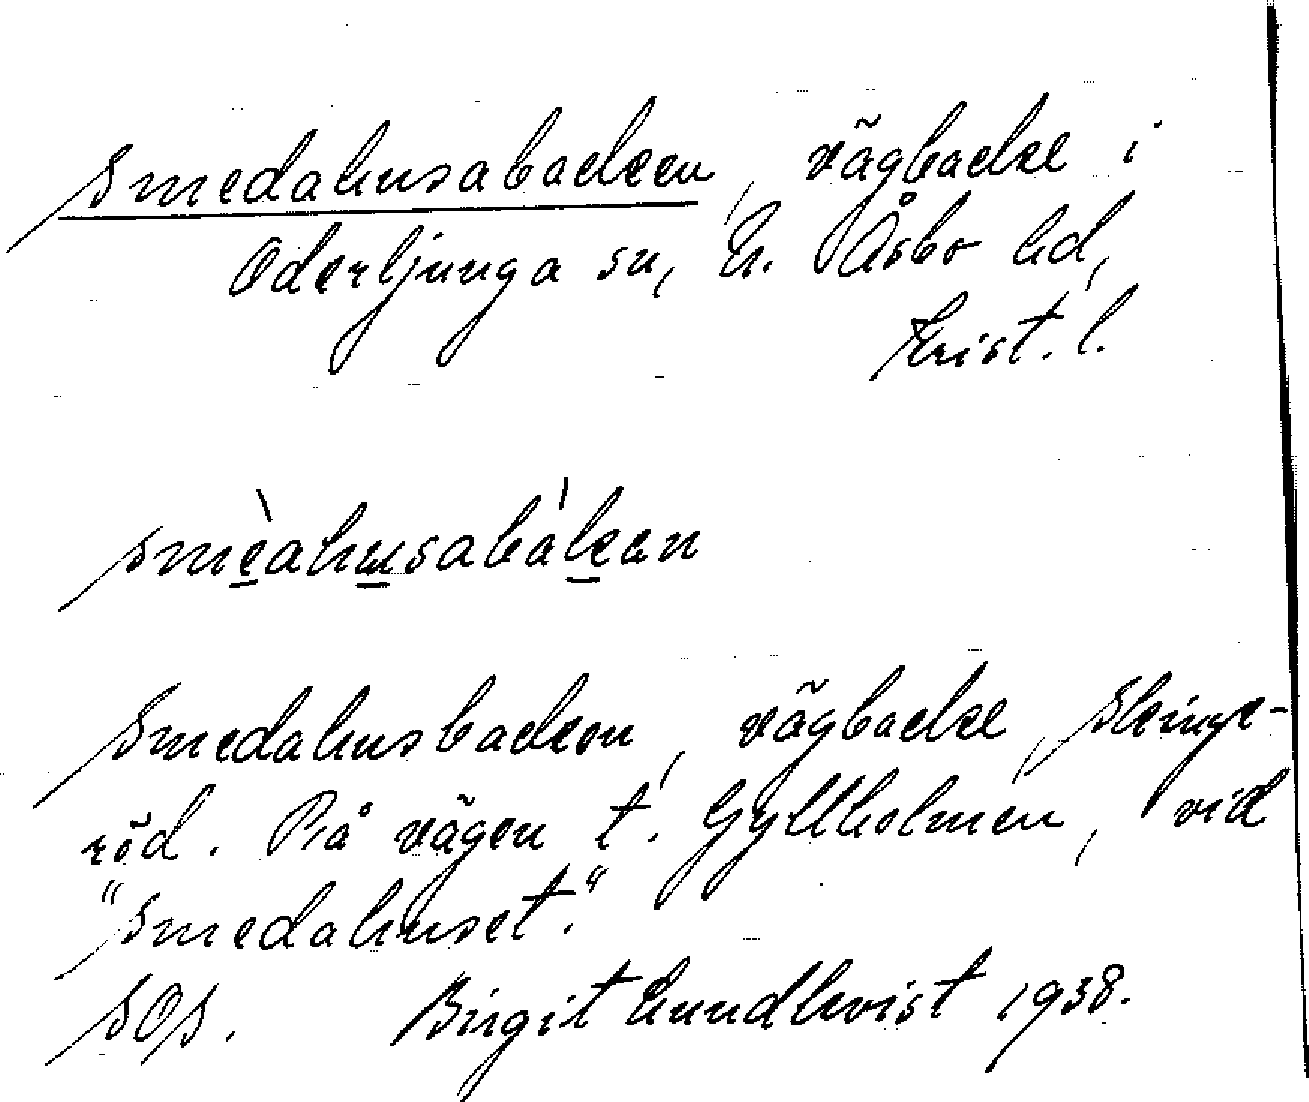 Smedahusabacken, vägbacke i
Oderljunga sn, N. Åsbo hd,
Krist. l.
smèahusabákan
Smedahusbacken, vägbacke, Skinge-
röd. På vägen t. Gyllholmen, vid
"Smedahuset."
SOS. Birgit Lundkvist 1938.